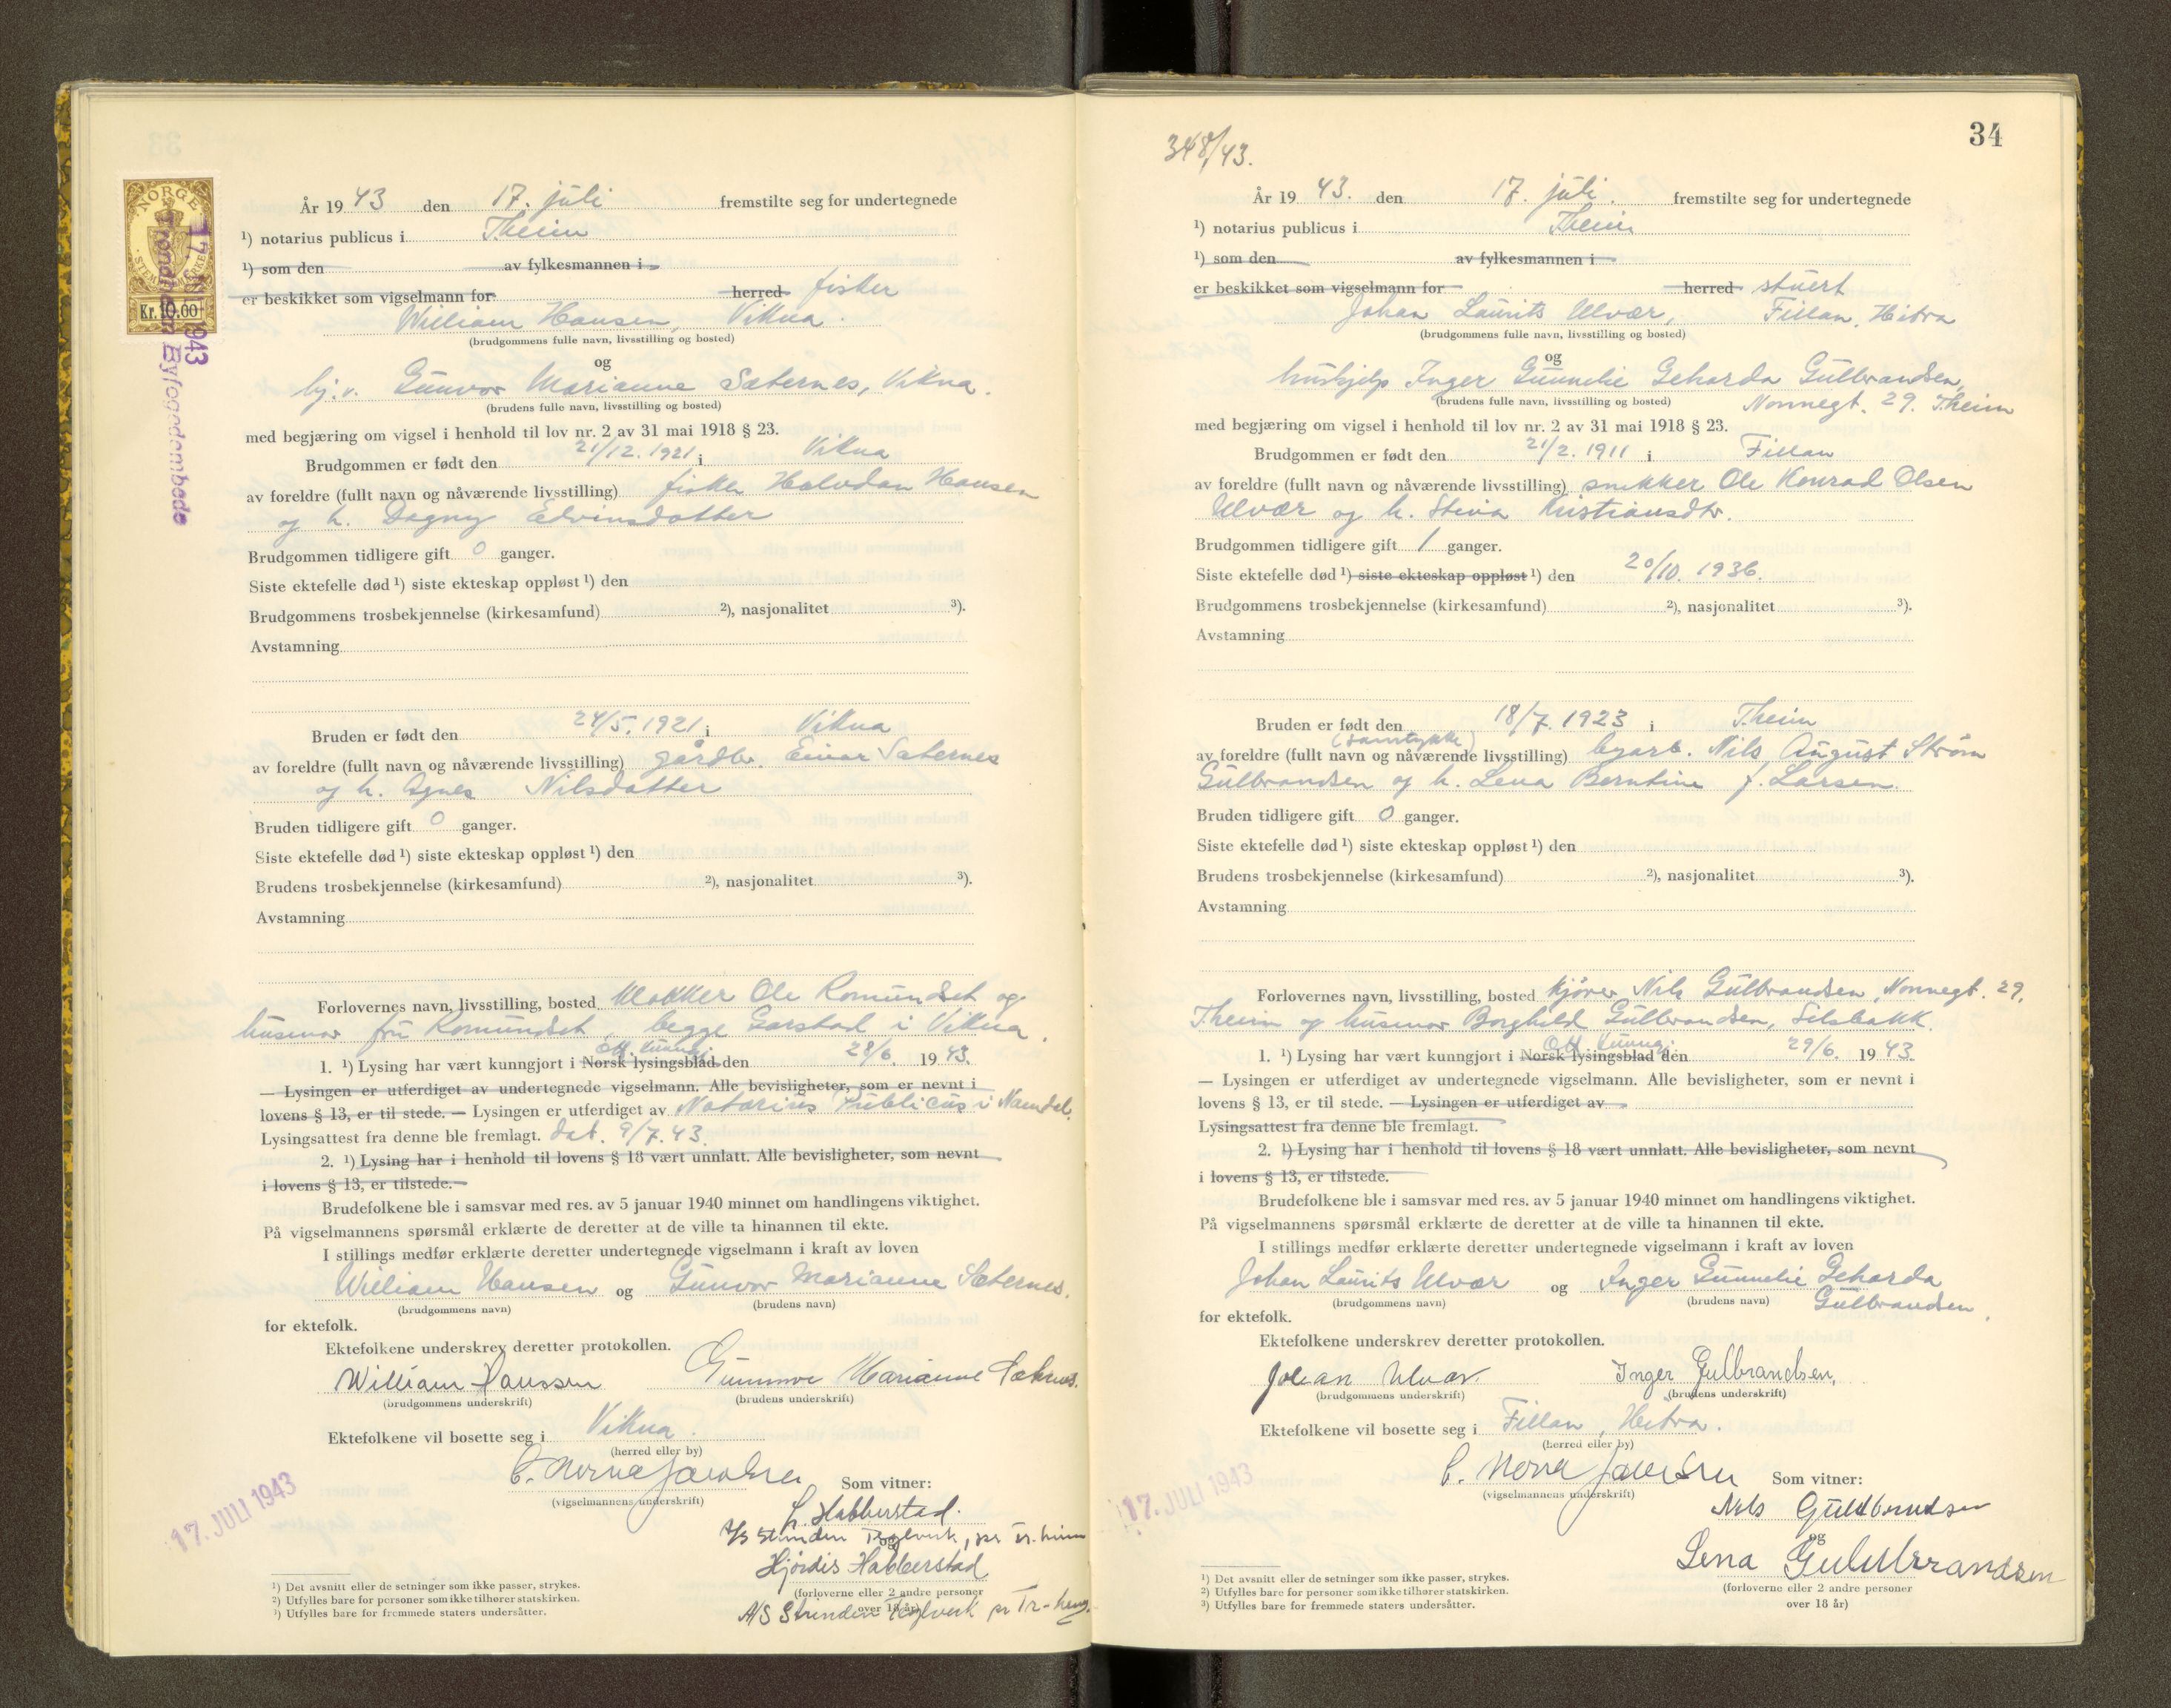 NORGE
STEMPELMERKE
Kr. 10.00
17 JULI 1943
Trondheim Byfogdembede
År 1943 den 17. juli fremstilte seg for undertegnede
¹) notarius publicus i Theim
¹) som den av fylkesmannen i
er beskikket som vigselmann for herred fisker
William Hansen, Vikna.
(brudgommens fulle navn, livsstilling og bosted)
og
hj.v. Gunvor Marianne Sæternes, Vikna.
(brudens fulle navn, livsstilling og bosted)
med begjæring om vigsel i henhold til lov nr. 2 av 31 mai 1918 § 23.
Brudgommen er født den 21/12. 1921 i Vikna
av foreldre (fullt navn og nåværende livsstilling) fisker Halvdan Hansen
og h. Dagny Edvinsdatter
Brudgommen tidligere gift 0 ganger.
Siste ektefelle død ¹) siste ekteskap oppløst ¹) den
Brudgommens trosbekjennelse (kirkesamfund) ²), nasjonalitet ³).
Avstamning
Bruden er født den 24/5. 1921 i Vikna
av foreldre (fullt navn og nåværende livsstilling) gårdbr. Einar Sæternes
og h. Agnes Nilsdatter
Bruden tidligere gift 0 ganger.
Siste ektefelle død ¹) siste ekteskap oppløst ¹) den
Brudens trosbekjennelse (kirkesamfund) ²), nasjonalitet ³).
Avstamning
Forlovernes navn, livsstilling, bosted klokker Ole Romundset og
husmor fru Romundset, begge Garstad i Vikna.
Off. kunngj.
1. ¹) Lysing har vært kunngjort i Norsk lysingsblad den 28/6. 1943.
— Lysingen er utferdiget av undertegnede vigselmann. Alle bevisligheter, som er nevnt i
lovens § 13, er til stede. — Lysingen er utferdiget av Notarius Publicus i Namdal.
Lysingsattest fra denne ble fremlagt. dat. 9/7. 43.
2. ¹) Lysing har i henhold til lovens § 18 vært unnlatt. Alle bevisligheter, som nevnt
i lovens § 13, er tilstede.
Brudefolkene ble i samsvar med res. av 5 januar 1940 minnet om handlingens viktighet.
På vigselmannens spørsmål erklærte de deretter at de ville ta hinannen til ekte.
I stillings medfør erklærte deretter undertegnede vigselmann i kraft av loven
William Hansen og Gunvor Marianne Sæternes.
(brudgommens navn) (brudens navn)
for ektefolk.
Ektefolkene underskrev deretter protokollen.
William Hanssen Gunnvor Marianne Sæternes.
(brudgommens underskrift) (brudens underskrift)
Ektefolkene vil bosette seg i Vikna.
(herred eller by)
C. Mørne Jacobsen
(vigselmannens underskrift)
Som vitner:
17. JULI 1943
L. Habberstad.
A/S Strinden Teglverk, pr Tr.heim
og
Hjördis Habberstad
(forloverne eller 2 andre personer
over 18 år)
A/S Strinden Teglverk pr Tr-heim.
¹) Det avsnitt eller de setninger som ikke passer, strykes.
²) Utfylles bare for personer som ikke tilhører statskirken.
³) Utfylles bare for fremmede staters undersåtter.
34
348/43.
År 1943. den 17. juli. fremstilte seg for undertegnede
¹) notarius publicus i Theim
¹) som den av fylkesmannen i
er beskikket som vigselmann for herred stuert
Johan Laurits Ulvær, Fillan, Hitra
(brudgommens fulle navn, livsstilling og bosted)
og
hushjelp Inger Gunnelie Geharda Gulbrandsen,
(brudens fulle navn, livsstilling og bosted) Nonnegt. 29. Theim
med begjæring om vigsel i henhold til lov nr. 2 av 31 mai 1918 § 23.
Brudgommen er født den 21/2. 1911 i Fillan
av foreldre (fullt navn og nåværende livsstilling) snekker Ole Konrad Olsen
Ulvær og h. Stina Kristiansdtr.
Brudgommen tidligere gift 1 ganger.
Siste ektefelle død ¹) siste ekteskap oppløst ¹) den 20/10. 1936.
Brudgommens trosbekjennelse (kirkesamfund) ²), nasjonalitet ³).
Avstamning
Bruden er født den 18/7. 1923 i Theim
(samtykke)
av foreldre (fullt navn og nåværende livsstilling) byarb. Nils August Strøm
Gulbrandsen og h. Lena Berntine f. Larsen.
Bruden tidligere gift 0 ganger.
Siste ektefelle død ¹) siste ekteskap oppløst ¹) den
Brudens trosbekjennelse (kirkesamfund) ²), nasjonalitet ³).
Avstamning
Forlovernes navn, livsstilling, bosted kjører Nils Gulbrandsen, Nonnegt. 29,
Theim og husmor Borghild Gulbrandsen, Selsbakk.
Off. kunngj.
1. ¹) Lysing har vært kunngjort i Norsk lysingsblad den 29/6. 1943.
— Lysingen er utferdiget av undertegnede vigselmann. Alle bevisligheter, som er nevnt i
lovens § 13, er til stede. — Lysingen er utferdiget av
Lysingsattest fra denne ble fremlagt.
2. ¹) Lysing har i henhold til lovens § 18 vært unnlatt. Alle bevisligheter, som nevnt
i lovens § 13, er tilstede.
Brudefolkene ble i samsvar med res. av 5 januar 1940 minnet om handlingens viktighet.
På vigselmannens spørsmål erklærte de deretter at de ville ta hinannen til ekte.
I stillings medfør erklærte deretter undertegnede vigselmann i kraft av loven
Johan Laurits Ulvær og Inger Gunnelie Geharda
(brudgommens navn) (brudens navn) Gulbrandsen.
for ektefolk.
Ektefolkene underskrev deretter protokollen.
Johan Ulvær. Inger Gulbrandsen,
(brudgommens underskrift) (brudens underskrift)
Ektefolkene vil bosette seg i Fillan, Hitra.
(herred eller by)
C. Mørne Jacobsen
(vigselmannens underskrift)
Som vitner:
17. JULI 1943
Nils Guldbrandsen
og
Lena Guldbrandsen
(forloverne eller 2 andre personer
over 18 år)
¹) Det avsnitt eller de setninger som ikke passer, strykes.
²) Utfylles bare for personer som ikke tilhører statskirken.
³) Utfylles bare for fremmede staters undersåtter.